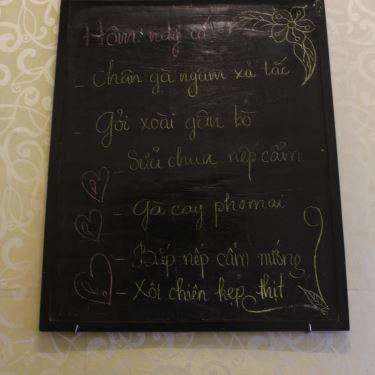 Hôm nay có
- Chân gà ngâm xả tắc
- Gỏi xoài gân bò
- Sữa chua nếp cẩm
- Gà cay phomai
- Bắp nếp cẩm miếng
- Xôi chiên kẹp thịt